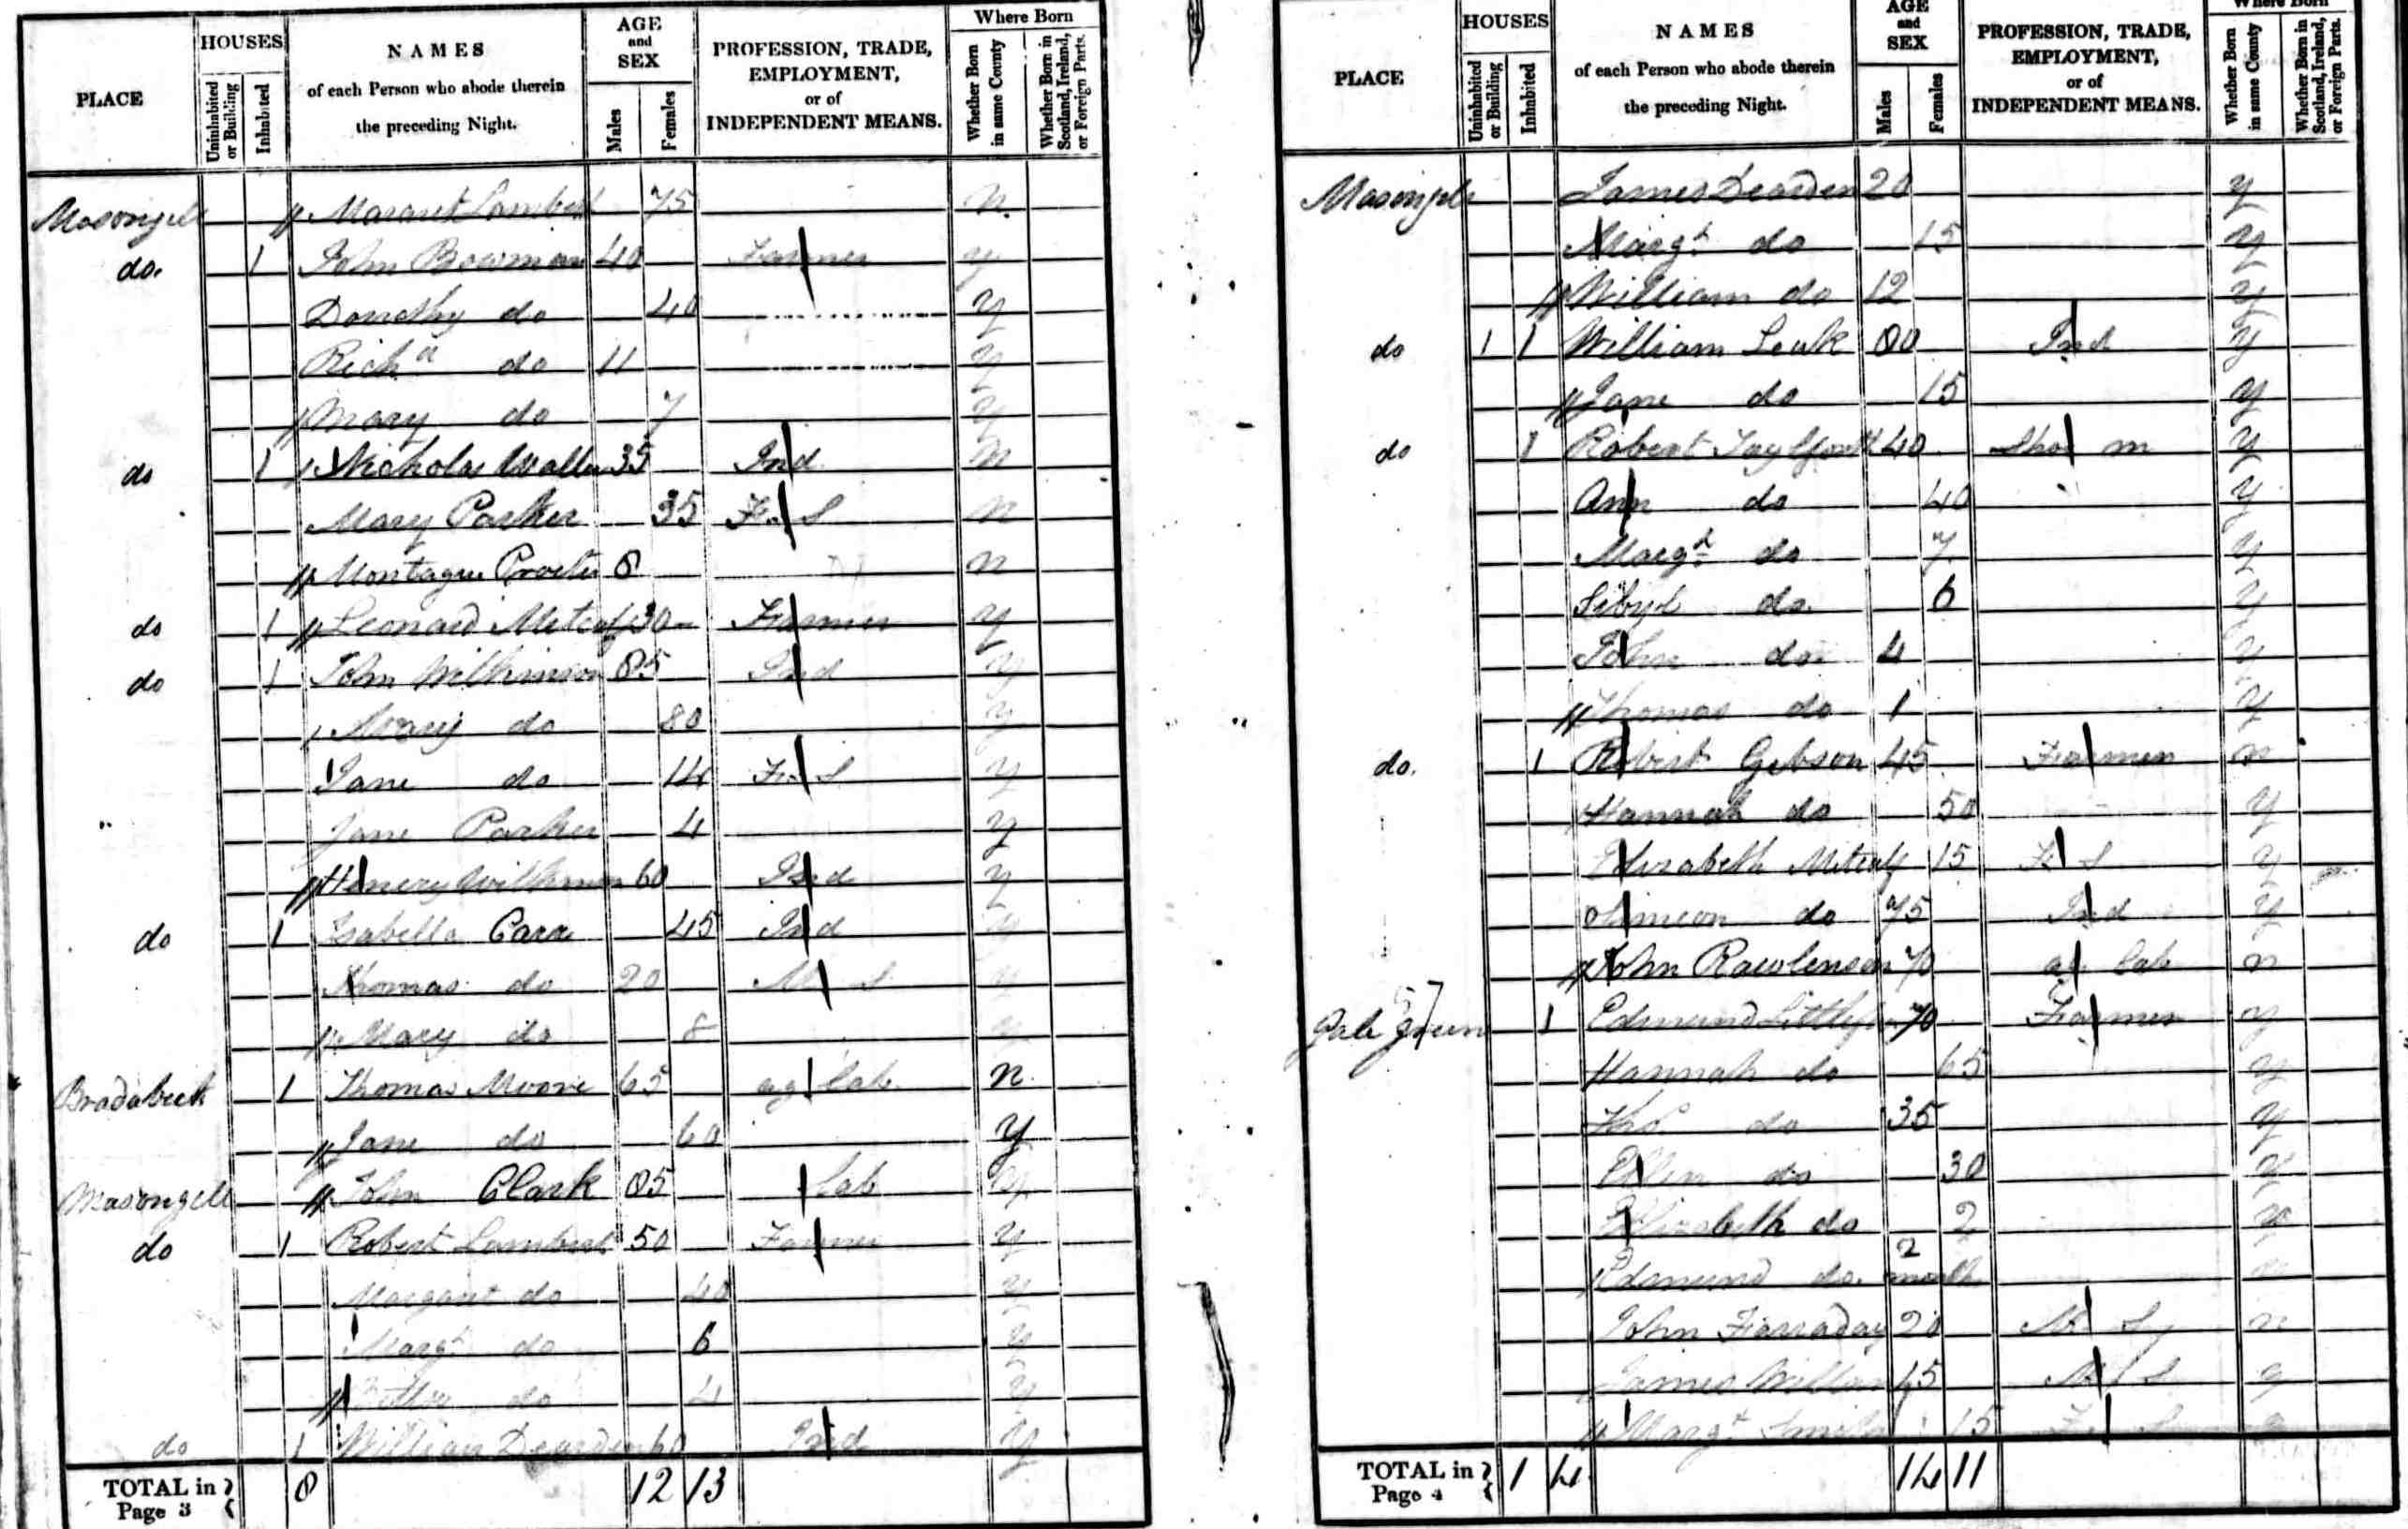 PLACE HOUSES Uninhabited or Building Inhabited NAMES of each Person who abode therein the preceding Night. AGE and SEX Males Females PROFESSION, TRADE, EMPLOYMENT, or of INDEPENDENT MEANS. Where Born Whether Born in same County Whether Born in Scotland, Ireland, or Foreign Parts.
Masongill Lambert 75 n
do. 1 John Bowman 40 Farmer y
Dorothy do 40 y
Richd do 11 y
Mary do 7 y
do 1 Nicholas 35 Ind n
Mary Parker 35 F. S n
Montague Procter 8 n
do 1 Leonard Metcalf 30 Farmer y
do 1 John Wilkinson 85 Ind y
Mary do 80 y
Jane do 14 F. S y
Jane Parker 4 y
Henery Wilkinson 60 Ind y
do 1 Isabella 45 Ind y
Thomas do 20 M S y
Mary do 8 y
1 Thomas Moore 65 ag lab n
Jane do 60 y
Masongill John Clark 85 lab
do 1 Robert Lambert 50 Farmer y
Margaret do 40 y
Margt do 6 y
do 4 y
do 1 William Dearden 60 Ind y
TOTAL in Page 3 8 12 13
PLACE HOUSES Uninhabited or Building Inhabited NAMES of each Person who abode therein the preceding Night. AGE and SEX Males Females PROFESSION, TRADE, EMPLOYMENT, or of INDEPENDENT MEANS. Where Born Whether Born in same County Whether Born in Scotland, Ireland, or Foreign Parts.
Masongill James Dearden 20 y
Margt do 15 y
William do 12 y
do 1 1 William 80 Ind y
Jane do 15 y
do 1 Robert 40 Shoe m y
Ann do 40 y
Margt do 7 y
Sibyl do 6 y
John do 4 y
Thomas do 1 y
do. 1 Robert Gibson 45 Farmer n
Hannah do 50 y
Elisabeth Metcalf 15 F S y
Simeon do 75 Ind y
John Rawlinson 70 ag lab n
Gale Green 1 Edmund 70 Farmer y
Hannah do 65 y
Thos do 35 y
Ellin do 30 y
Elizabeth do 2 y
Edmund do. 2 month
John Farraday 20 M S n
James Willan 15 M S y
Margt 15 F S
TOTAL in Page 4 1 4 14 11